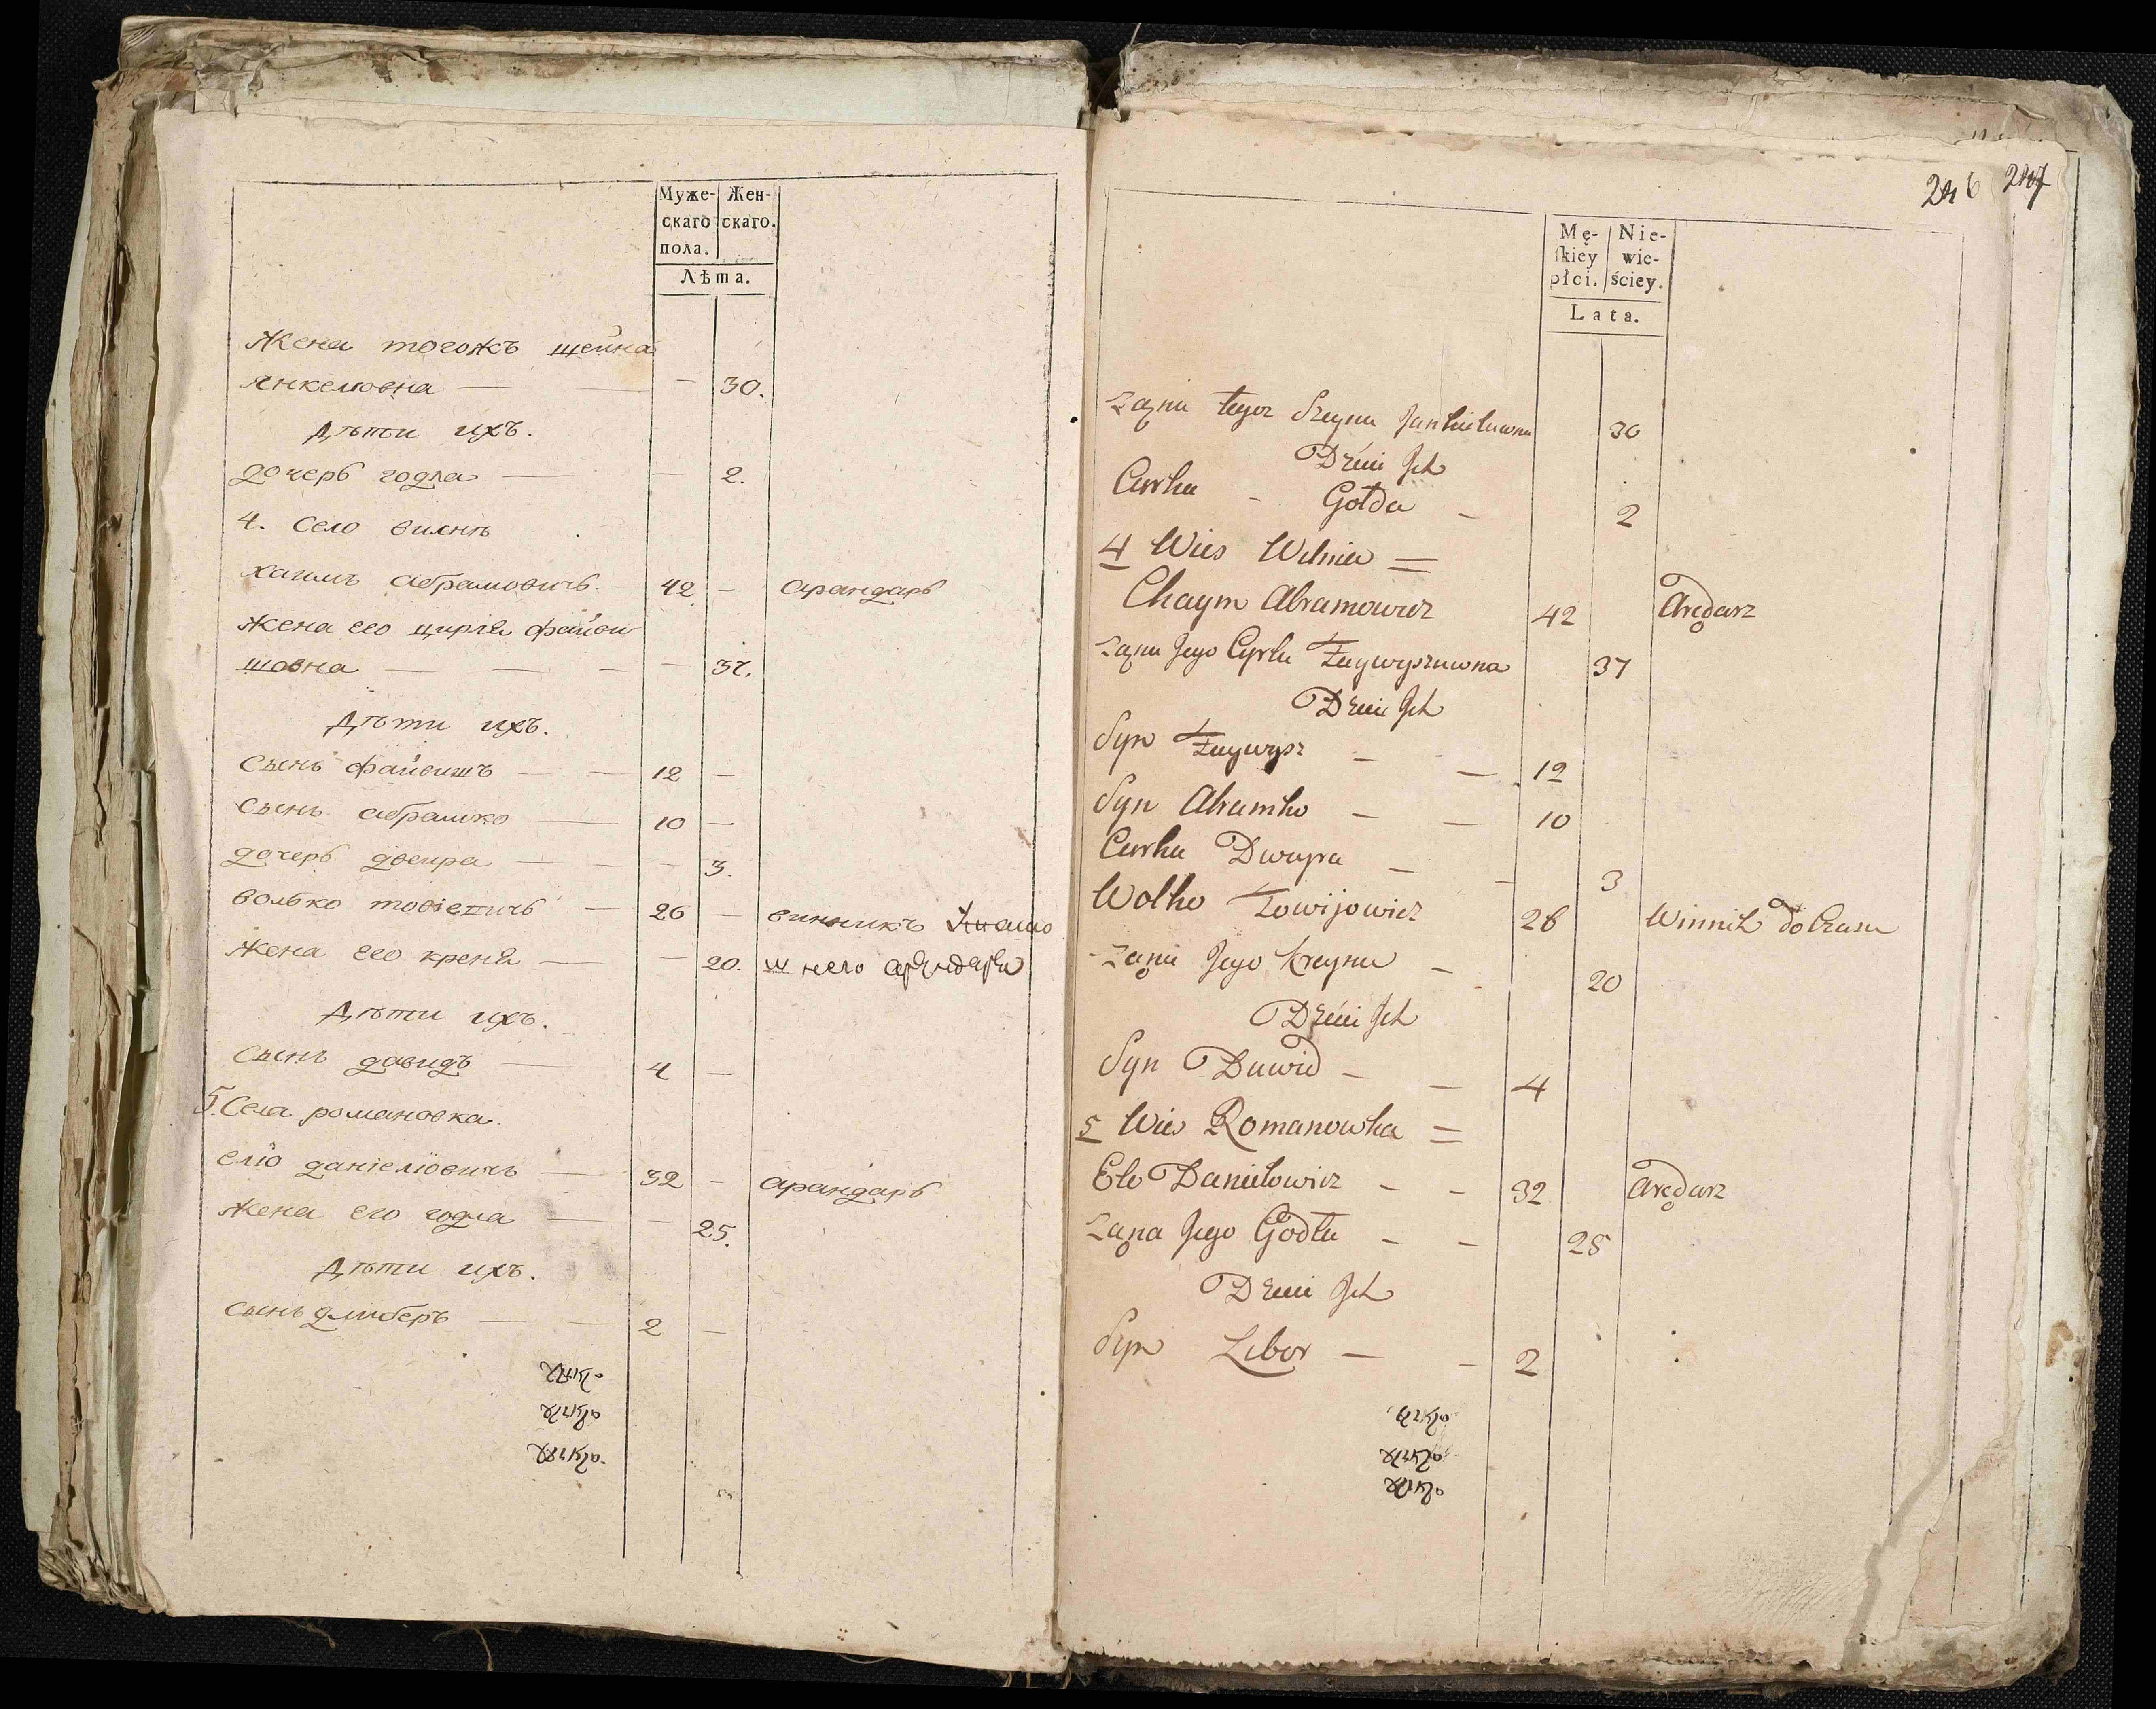 Муже-
скаго
пола.
Жен-
скаго.
Лѣта.
Жена тогожъ шейна
Янкелювна — — 30.
Дѣти ихъ.
дочерь годла — — 2.
4. Село вилнѣ
хаимъ абрамовичь. 42 — арандарь
жена его цирля файви
шовна — — — — 37.
Дѣти ихъ.
Сынъ файвишъ — — 12 —
Сынъ абрамко — 10 —
дочерь двейра — — — 3.
волько — 26 — винникъ
жена его крейня — — 20. него арендаря
Дѣти ихъ.
Сынъ давидъ — 4 —
5. Села романовка.
еліо даніеліовичь — 32 — арандарь
жена его годла — — 25.
Дѣти ихъ.
Сынъ либеръ — — 2 —
246 247
Mę-
ſkiey
płci.
Nie-
wie-
ściey.
Lata.
Żąna tegoż Szeyna Jankieluwna 30
Dzieci Jch
Curka - Gołda - 2
4 Wies Wilnia =
Chaym Abramowicz 42 Arędarz
Żąna Jego Cyrla Faywyszuwna 37
Dzieci Jch
Syn Faywysz — — 12
Syn Abramko — — 10
Curka Dwayra — — 3
Wolko Towijowicz 26 Winnik do Czasu
Żąna Jego Kreyna — 20
Dzieci Jch
Syn Dawid — — 4
5 Wies Romanowka =
Elo Danielowicz - - 32 Arędarz
Żąna Jego Godla - - 25
Dzieci Jch
Syn Libor — - 2